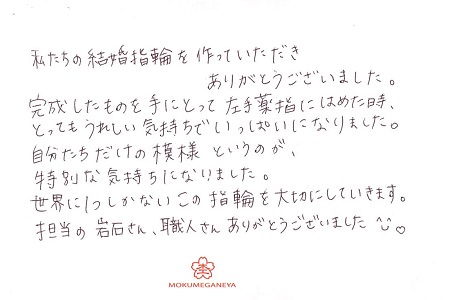 私たちの結婚指輪を作っていただき
ありがとうございました。
完成したものを手にとって左手薬指にはめた時、
とってもうれしい気持ちでいっぱいになりました。
自分たちだけの模様というのが、
特別な気持ちになりました。
世界に1つしかないこの指輪を大切にしていきます。
担当の岩石さん、職人さんありがとうございました
MOKUMEGANEYA